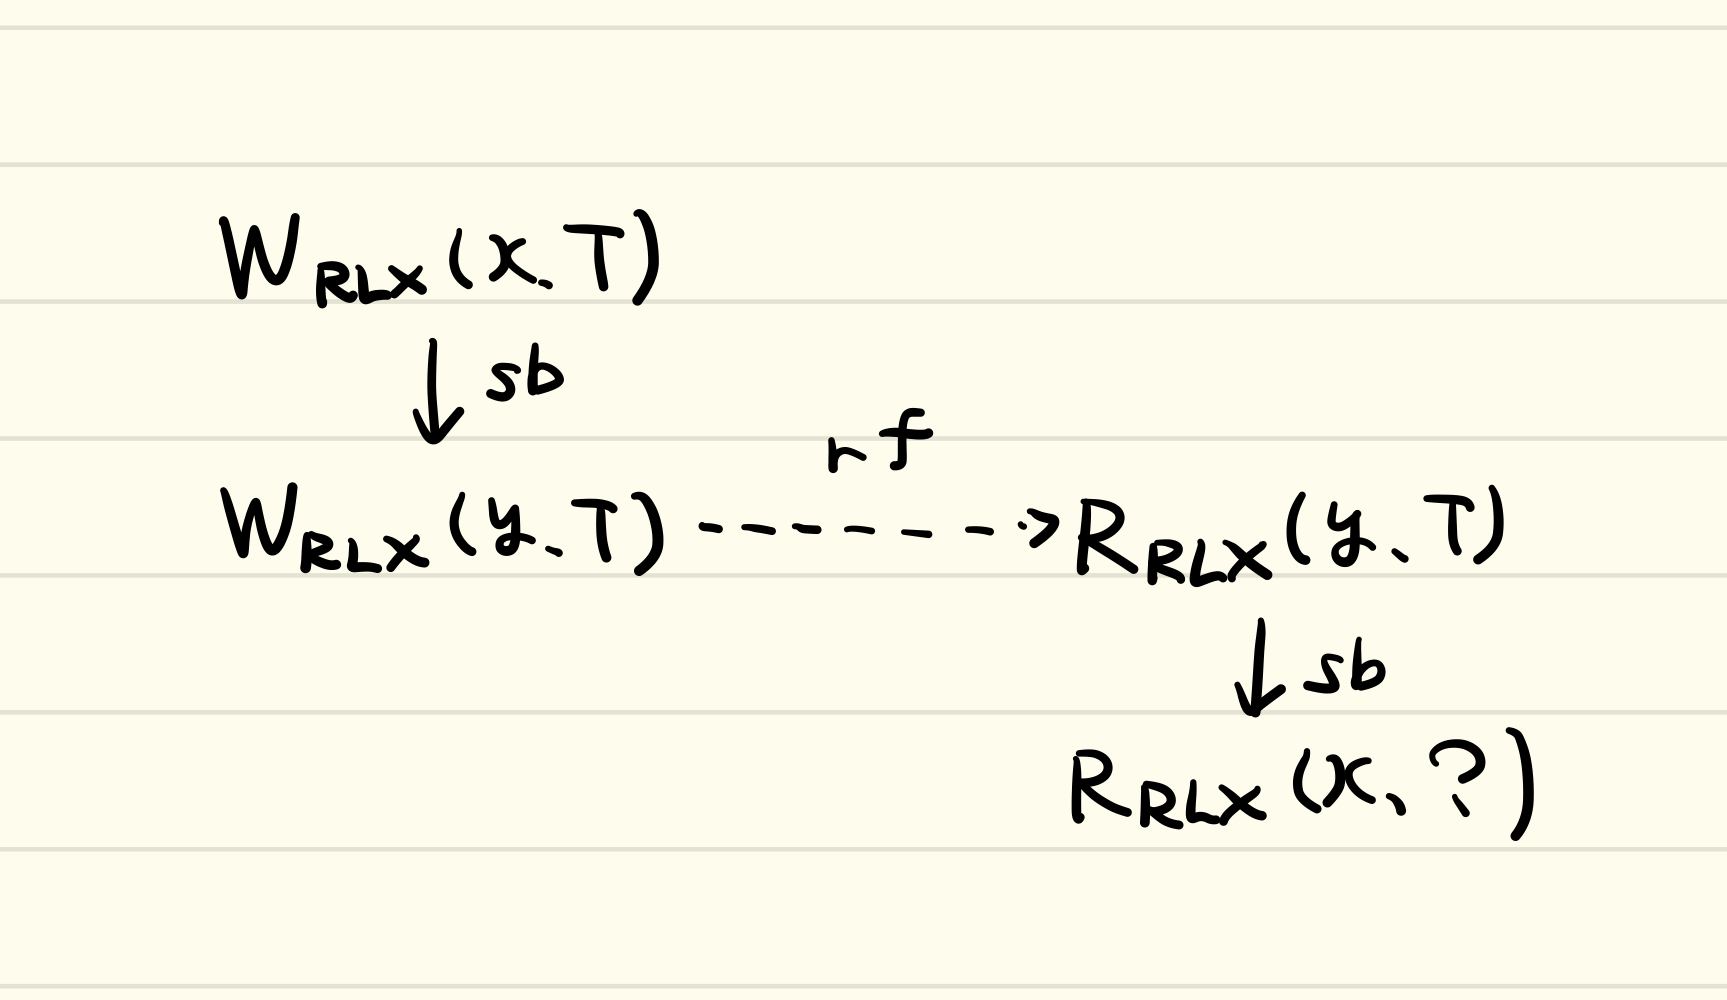 W RLX (x, T)
↓ sb
rf
W RLX (y, T) ------> R RLX (y, T)
↓ sb
R RLX (x, ?)